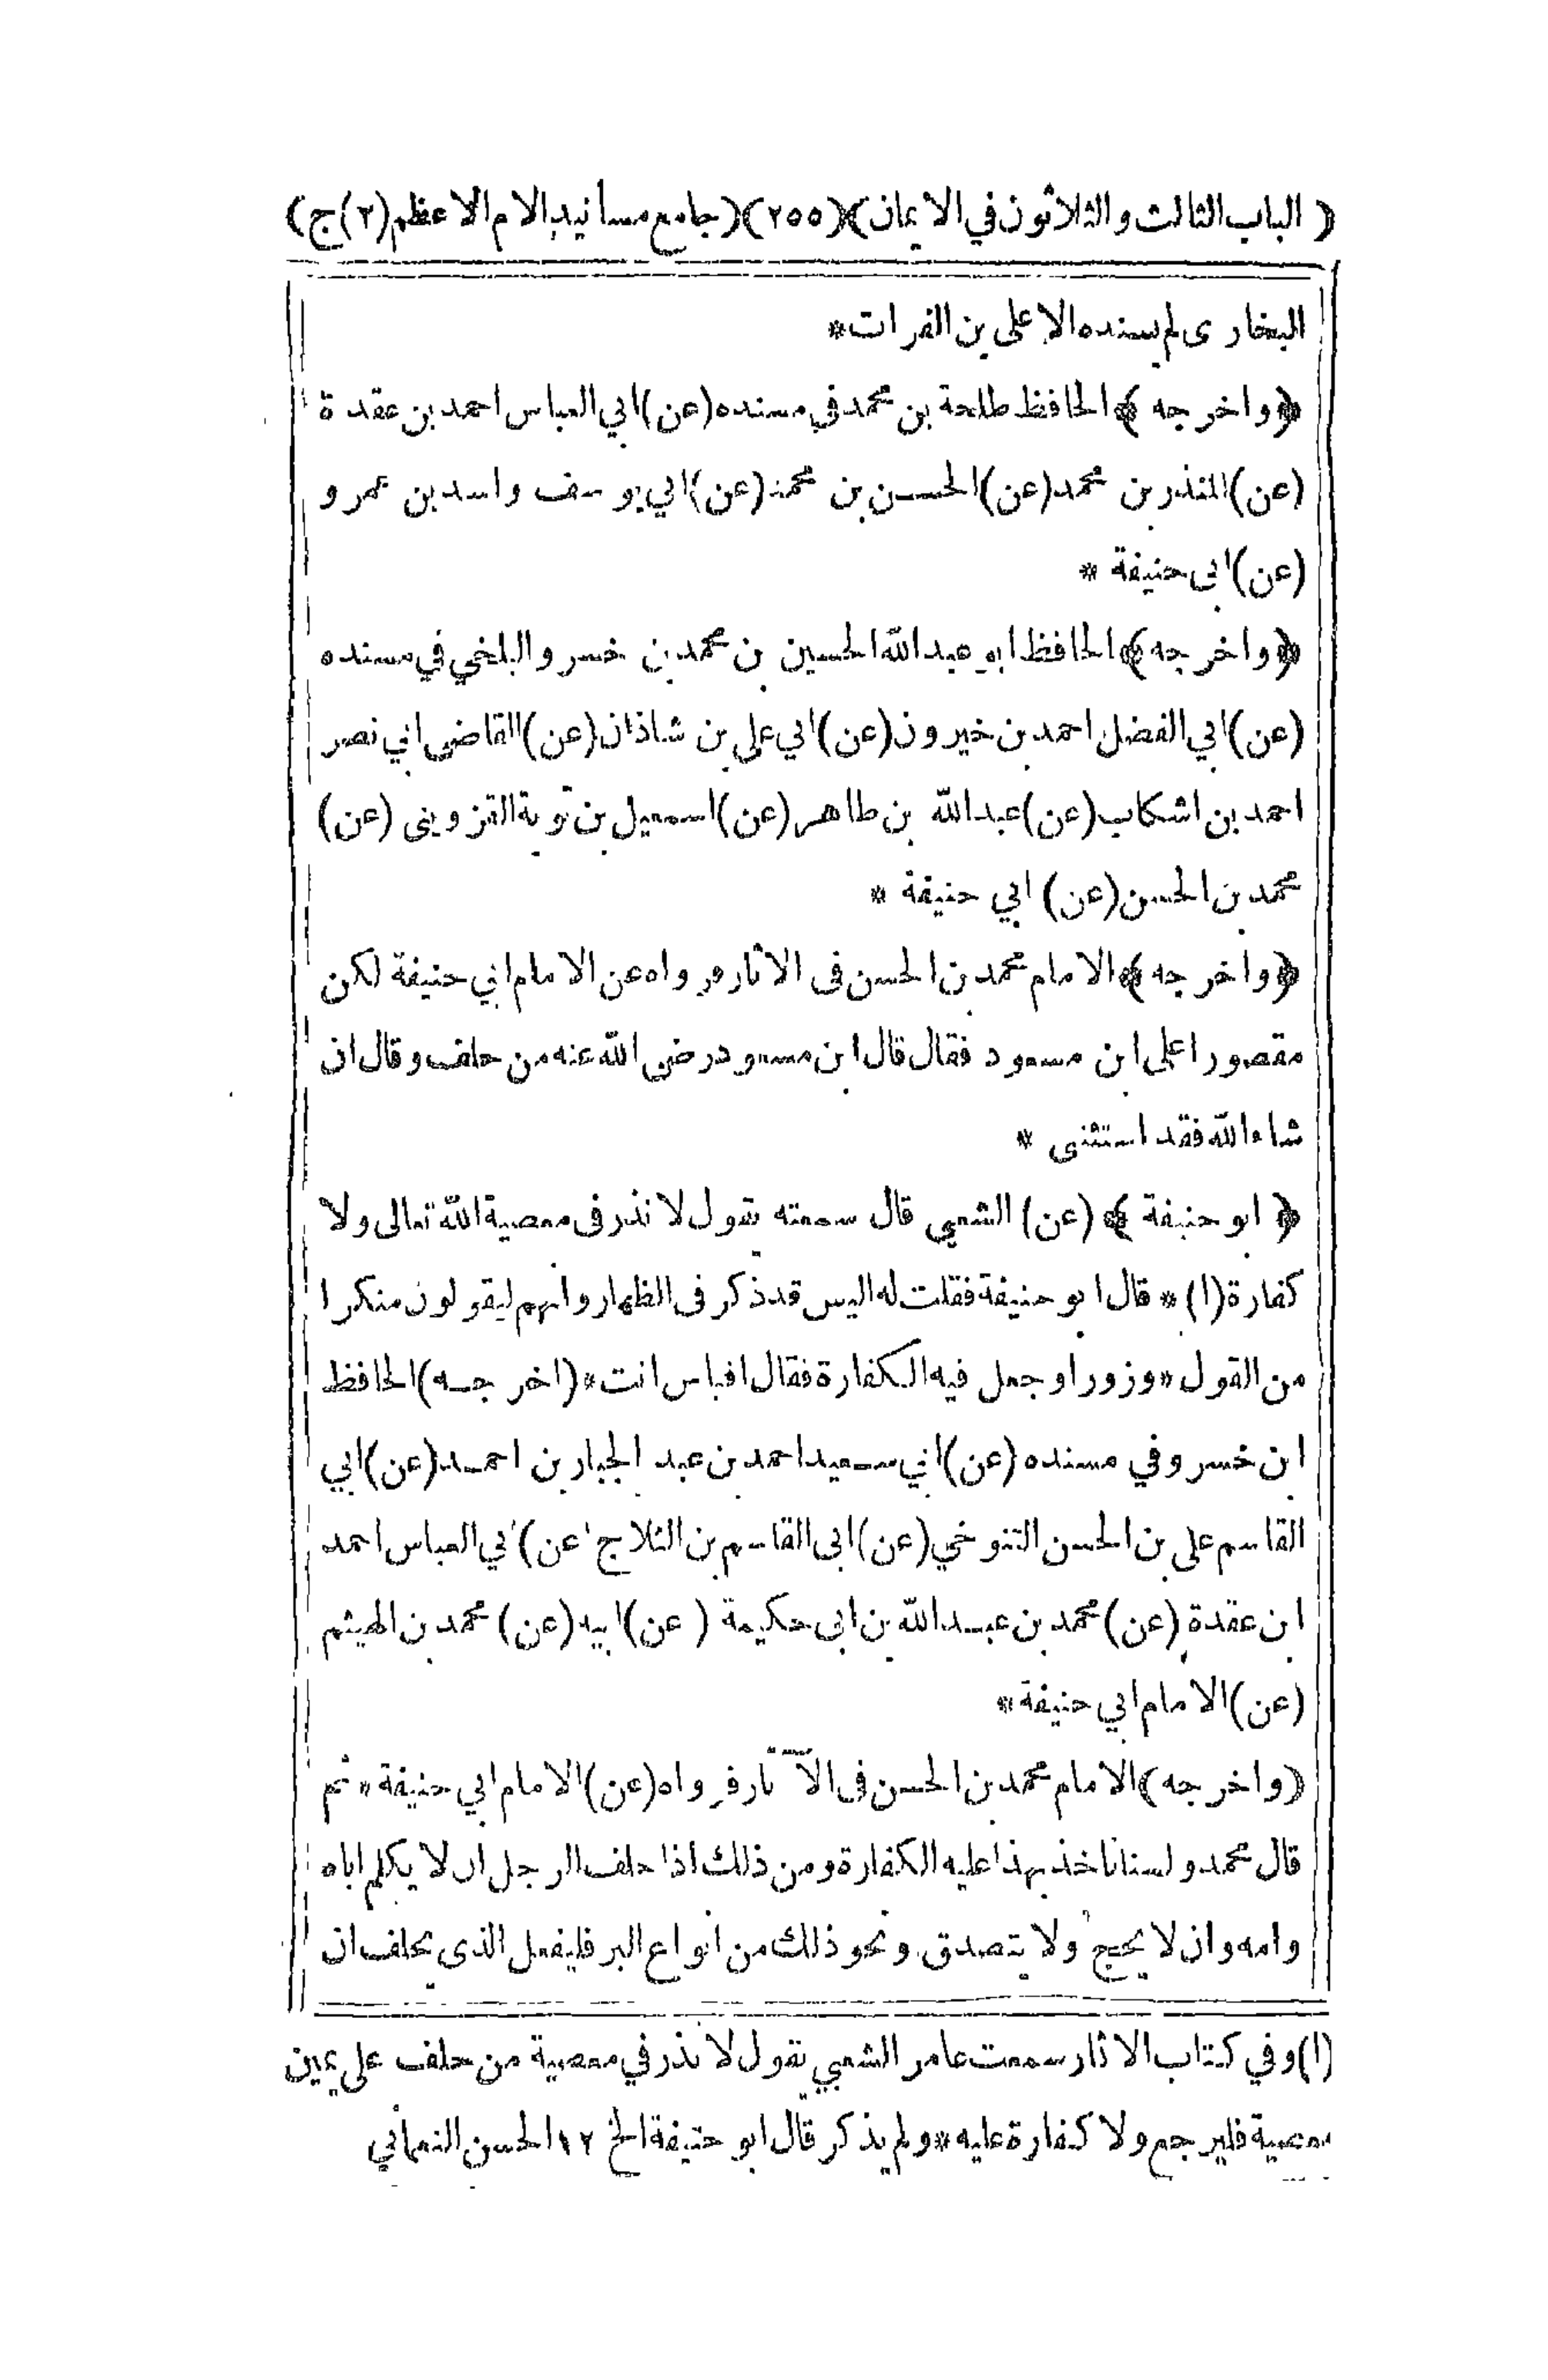 ( الباب الثالث والثلاثون في الايمان )( ٢٥٥ )( جامع مسانيد الامام الاعظم (٢) ج )
البخارى لم يسنده الا على بن الفرات *
﴿ واخرجه ﴾ الحافظ طلحة بن محمد في مسنده (عن) ابي العباس احمد بن عقدة
(عن) المنذر بن محمد (عن) الحسن بن محمد (عن) ابي يوسف واسد بن عمرو
(عن) ابى حنيفة *
﴿ واخرجه ﴾ الحافظ ابو عبد الله الحسين بن محمد بن خسرو البلخي في مسنده
(عن) ابي الفضل احمد بن خيرون (عن) ابي علي بن شاذان (عن) القاضى ابي نصر
احمد بن اشكاب (عن) عبد الله بن طاهر (عن) اسمعيل بن توبة القزوينى (عن)
محمد بن الحسن (عن) ابي حنيفة *
﴿ واخرجه ﴾ الامام محمد بن الحسن فى الاثار ورواه عن الامام ابي حنيفة لكن
مقصورا على ابن مسعود فقال قال ابن مسعود رضى الله عنه من حلف وقال ان
شاء الله فقد استثنى *
﴿ ابو حنيفة ﴾ (عن) الشعبي قال سمعته يقول لا نذر فى معصية الله تعالى ولا
كفارة (١) * قال ابو حنيفة فقلت له اليس قد ذكر فى الظهار وانهم ليقولون منكرا
من القول * وزورا وجعل فيه الكفارة فقال اقياس انت * (اخرجه) الحافظ
ابن خسرو في مسنده (عن) ابي سعيد احمد بن عبد الجبار بن احمد (عن) ابي
القاسم على بن الحسن التنوخي (عن) ابى القاسم بن الثلاج (عن) ابي العباس احمد
ابن عقدة (عن) محمد بن عبد الله بن ابى حكيمة (عن) ابيه (عن) محمد بن الهيثم
(عن) الامام ابي حنيفة *
(واخرجه) الامام محمد بن الحسن فى الآثار فرواه (عن) الامام ابي حنيفة * ثم
قال محمد ولسنا ناخذ بهذا عليه الكفارة ومن ذلك اذا حلف الرجل ان لا يكلم اباه
وامه وان لا يحج ولا يتصدق ونحو ذلك من انواع البر فليفعل الذى يحلف ان
(١) وفي كتاب الاثار سمعت عامر الشعبي يقول لا نذر في معصية من حلف على يمين
معصية فليرجع ولا كفارة عليه * ولم يذكر قال ابو حنيفة الخ ١٢ الحسن النعماني